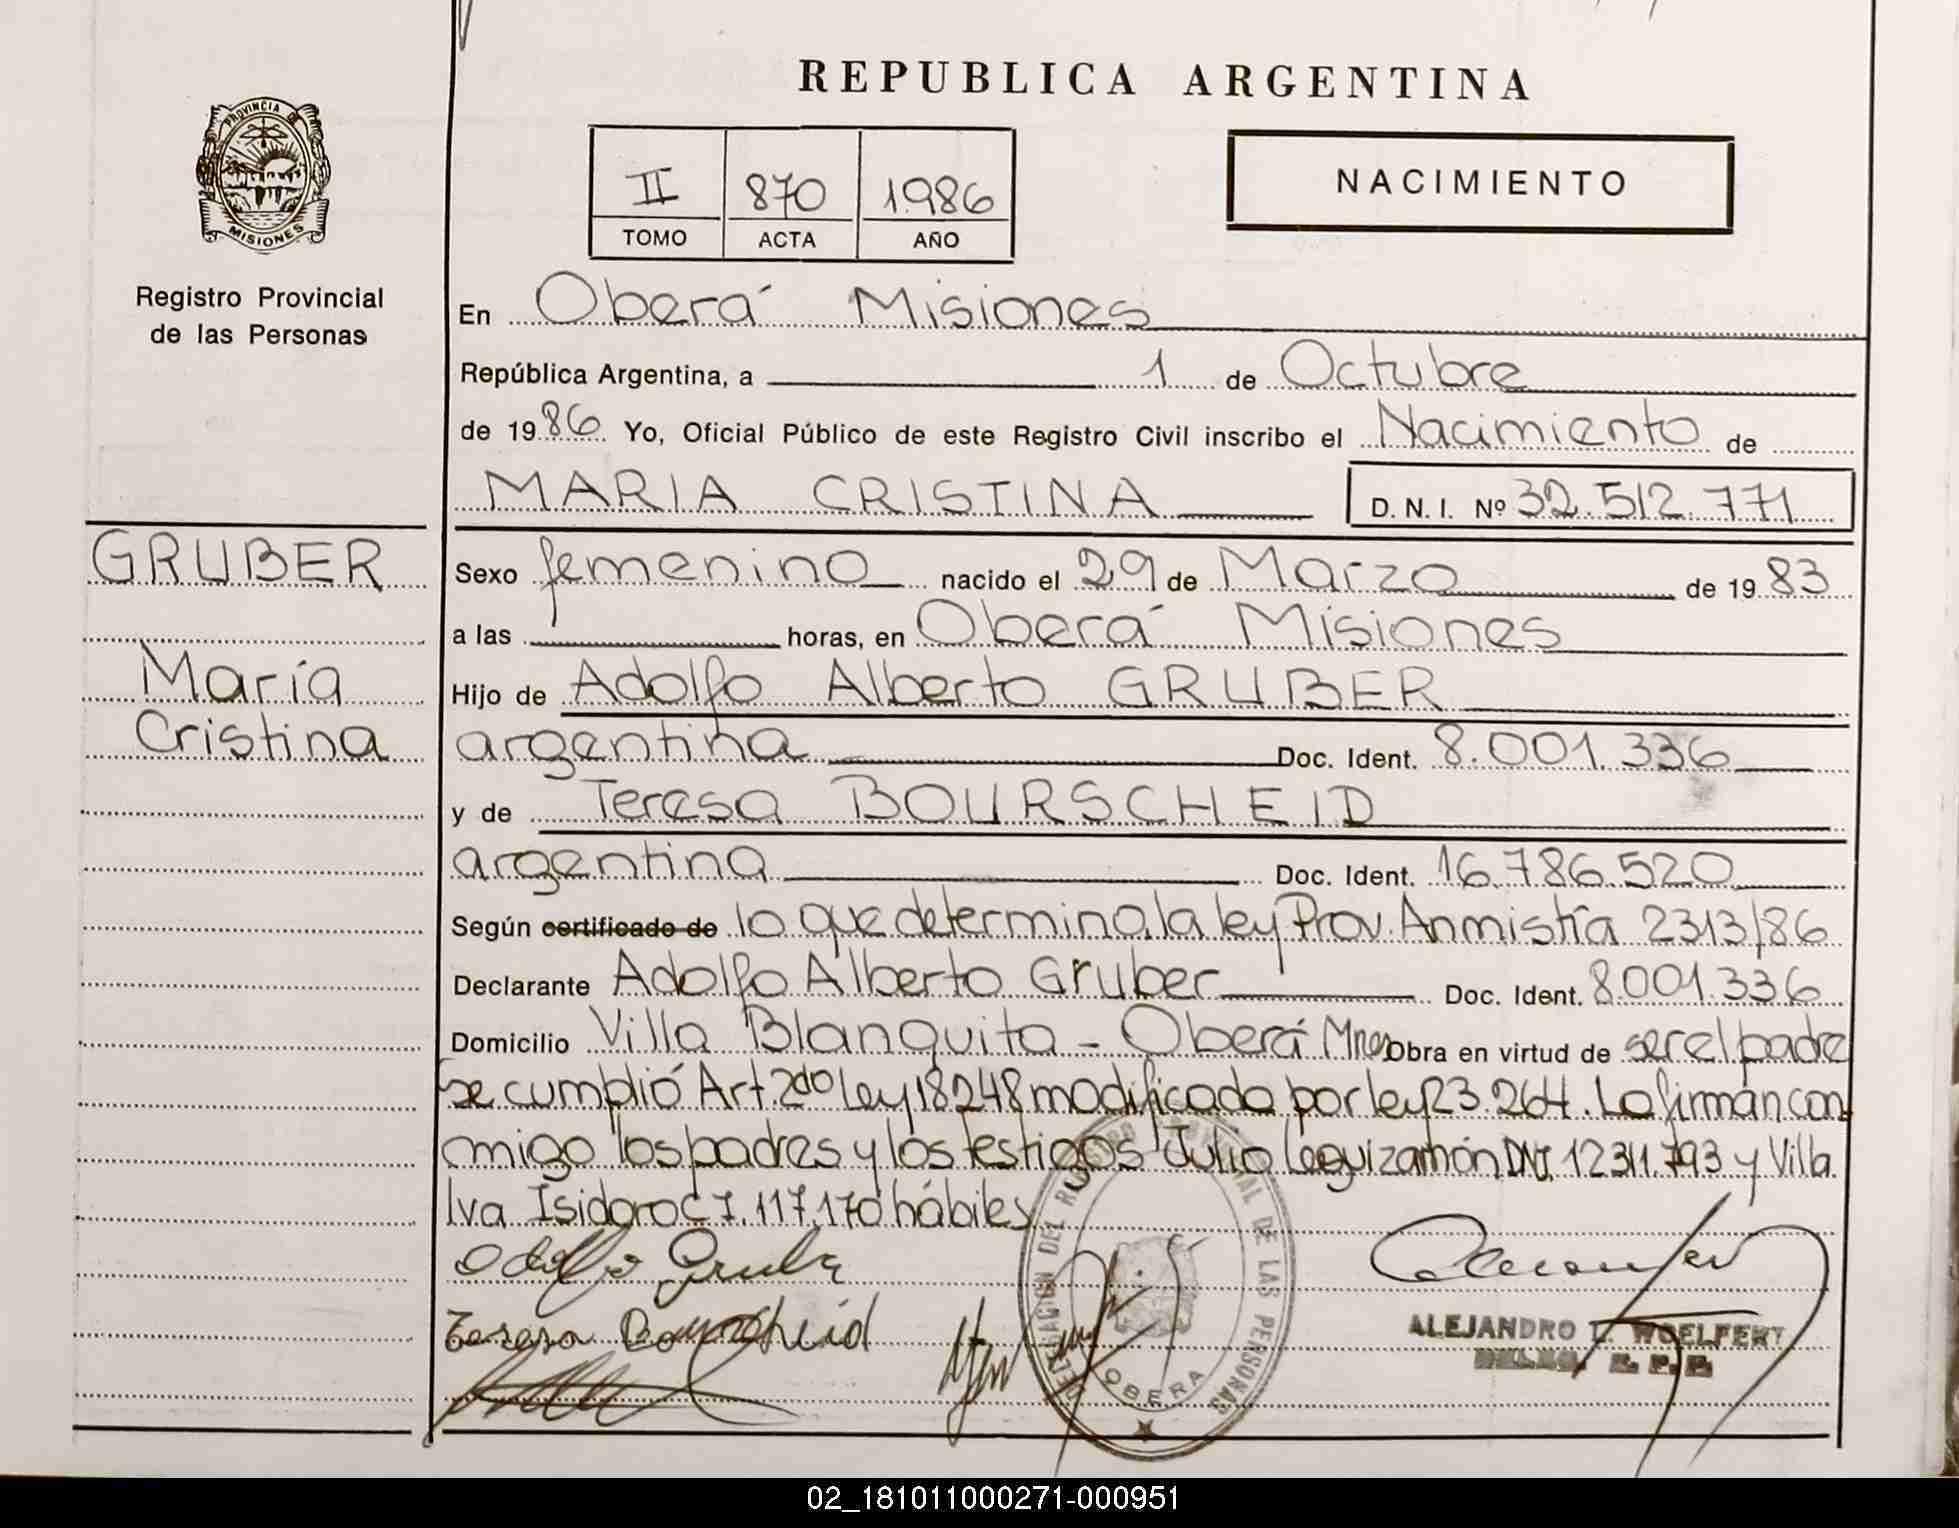 REPUBLICA ARGENTINA
PROVINCIA DE
MISIONES
II 870 1986
TOMO ACTA AÑO
NACIMIENTO
Registro Provincial
de las Personas
En Oberá Misiones
República Argentina, a 1 de Octubre
de 1986 Yo, Oficial Público de este Registro Civil inscribo el Nacimiento de
MARIA CRISTINA D. N. I. Nº 32.512.771
GRUBER
María
Cristina
Sexo femenino nacido el 29 de Marzo de 1983
a las horas, en Oberá Misiones
Hijo de Adolfo Alberto GRUBER
argentina Doc. Ident. 8.001.336
y de Teresa BOURSCHEID
argentina Doc. Ident. 16.786.520
Según certificado de lo que determina la ley Prov. Anmistía 2313/86
Declarante Adolfo Alberto Gruber Doc. Ident. 8.001.336
Domicilio Villa Blanquita - Oberá Mnes Obra en virtud de ser el padre
se cumplió Art 2do Ley 18248 modificada por ley 23.264. La firman con
migo los padres y los testigos Julio Leguizamón DNI. 12311.793 y Villa
lva Isidoro C I. 117.170 hábiles
Adolfo Gruber
Teresa Bourscheid
DELEGACION DEL REGISTRO PROVINCIAL DE LAS PERSONAS
OBERA
ALEJANDRO WOELFERT
02_181011000271-000951